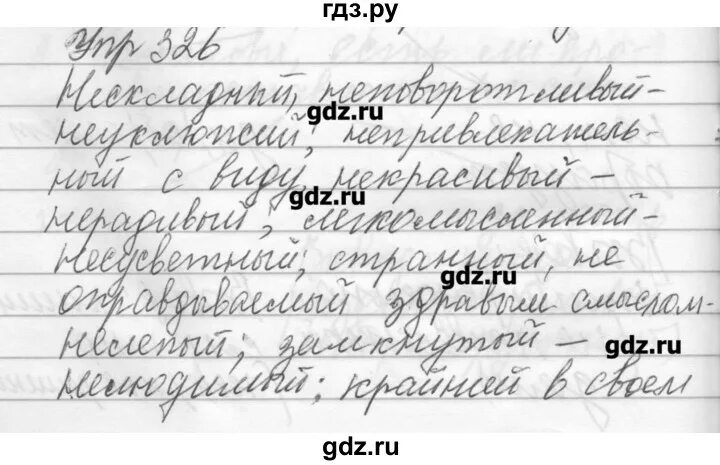 гдз.ру
Упр 326
Нескладный, неповоротливый-
неуклюжий; непривлекатель-
ный с виду, некрасивый -
нерадивый; легкомысленный-
несусветный; странный, не
оправдываемый здравым смыслом-
нелепый; замкнутый -
нелюдимый; крайней в своем
gdz.ru
gdz.ru
gdz.ru
gdz.ru
gdz.ru